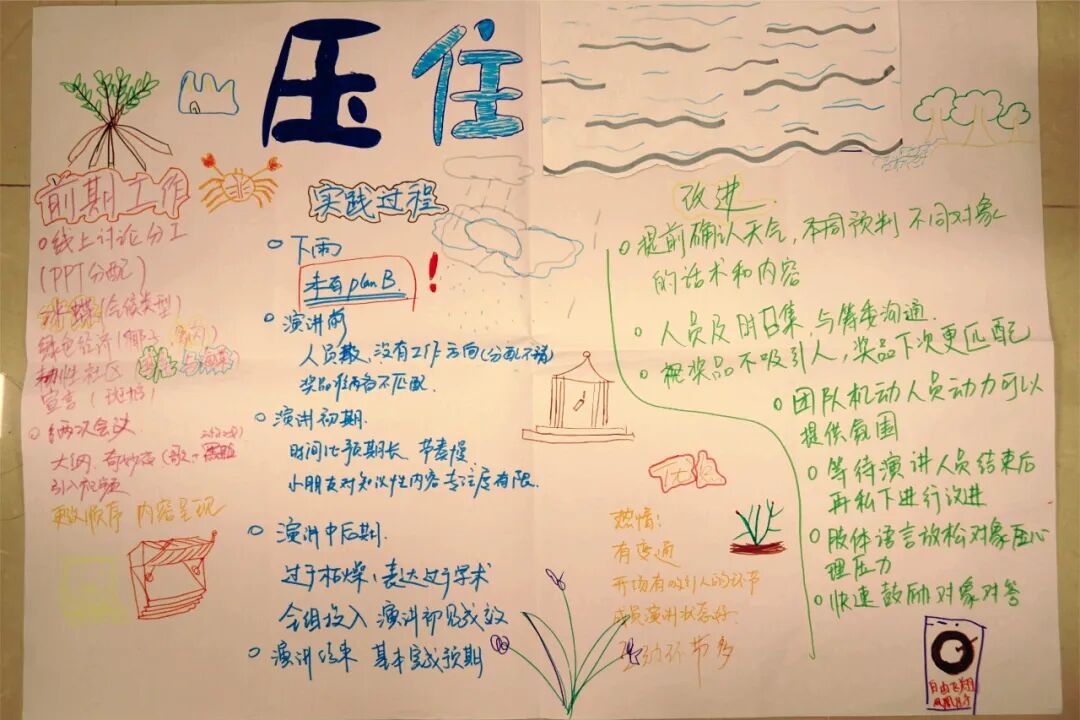 压住
前期工作
线上讨论分工
(PPT分配)
绿色经济(椰子
韧性社区
宣言(
两次会议
引入视频
更改顺序 内容呈现
实践过程
下雨
未有plan B. !
演讲前
人员散、没有工作方向(分配不
奖品 不匹配.
演讲初期.
时间比预期长 节奏慢
小朋友对知识性内容专注度有限.
演讲中后期.
过于枯燥,表达过于学术
全组投入 演讲初见成效
演讲结束 基本完成预期
优息
热情:
有变通
开场有吸引人的环节
成员演讲状态好.
互动环节多
改进
提前确认天气,不同预判 不同对象
的话术和内容
人员及时召集、与筹委沟通.
视奖品不吸引人,奖品下次更匹配
团队机动人员动力可以
提供氛围
等待演讲人员结束后
再私下进行改进
肢体语言放松对象
理压力
快速鼓励对象对答
自由飞翔